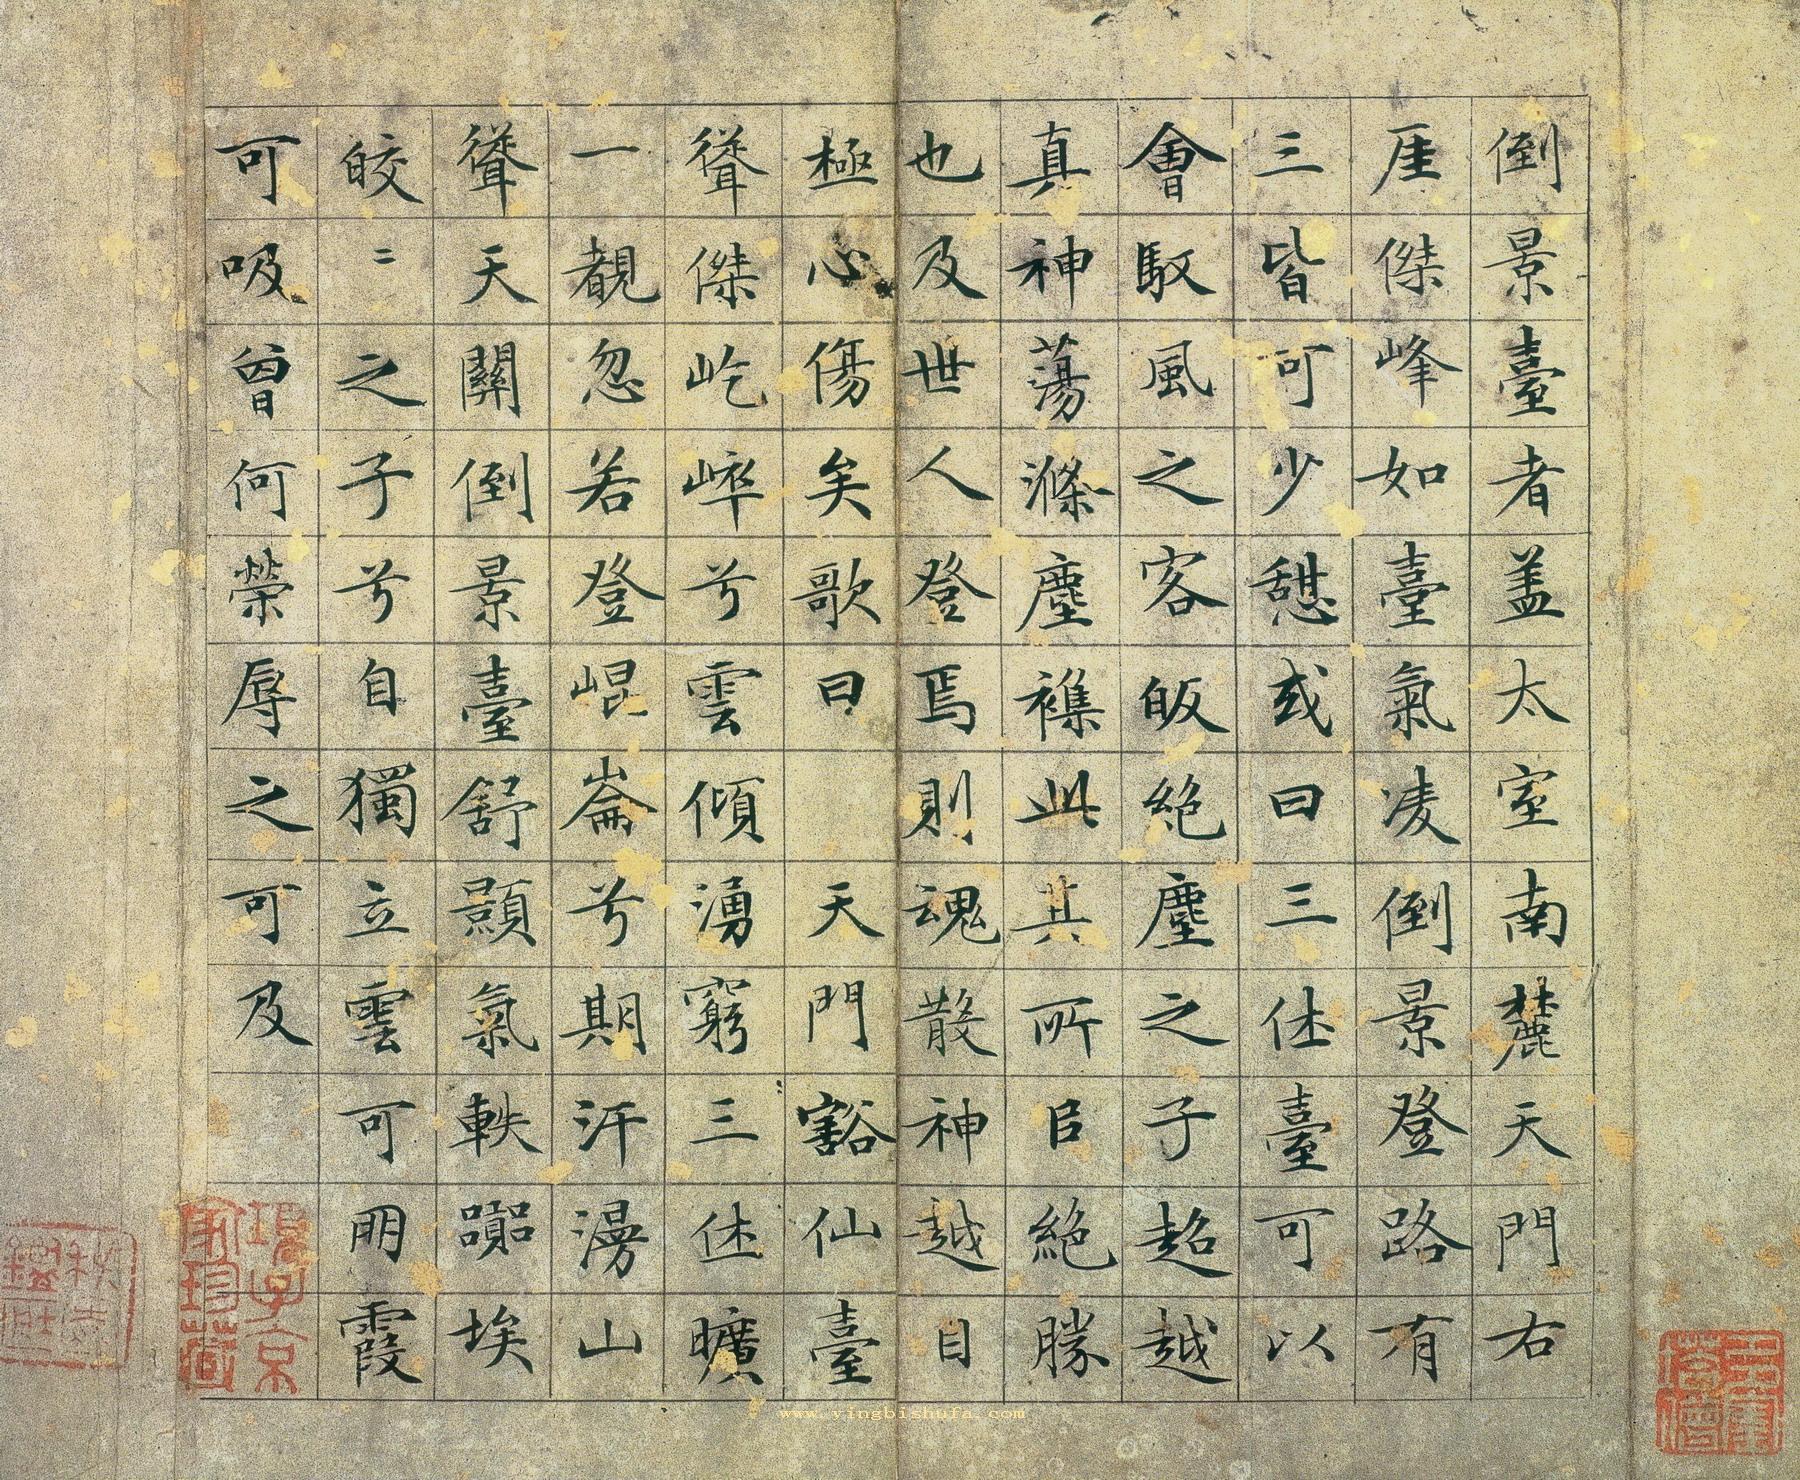 倒景臺者盖太室南麓天門右
厓傑峰如臺氣凌倒景登路有
三皆可少憩或曰三休臺可以
會馭風之客皈絶塵之子超越
真神蕩滌塵襍此其所㠯絶勝
也及世人登焉則魂散神越目
極心傷矣歌曰
天門豁仙臺
聳傑屹崪兮雲傾湧窮三休曠
一覩忽若登崐崙兮期汗漫山
聳天關倒景臺舒顥氣軼嚻埃
皎二之子兮自獨立雲可朋霞
可吸曾何榮辱之可及
項子京家珍藏
www.yingbishufa.com